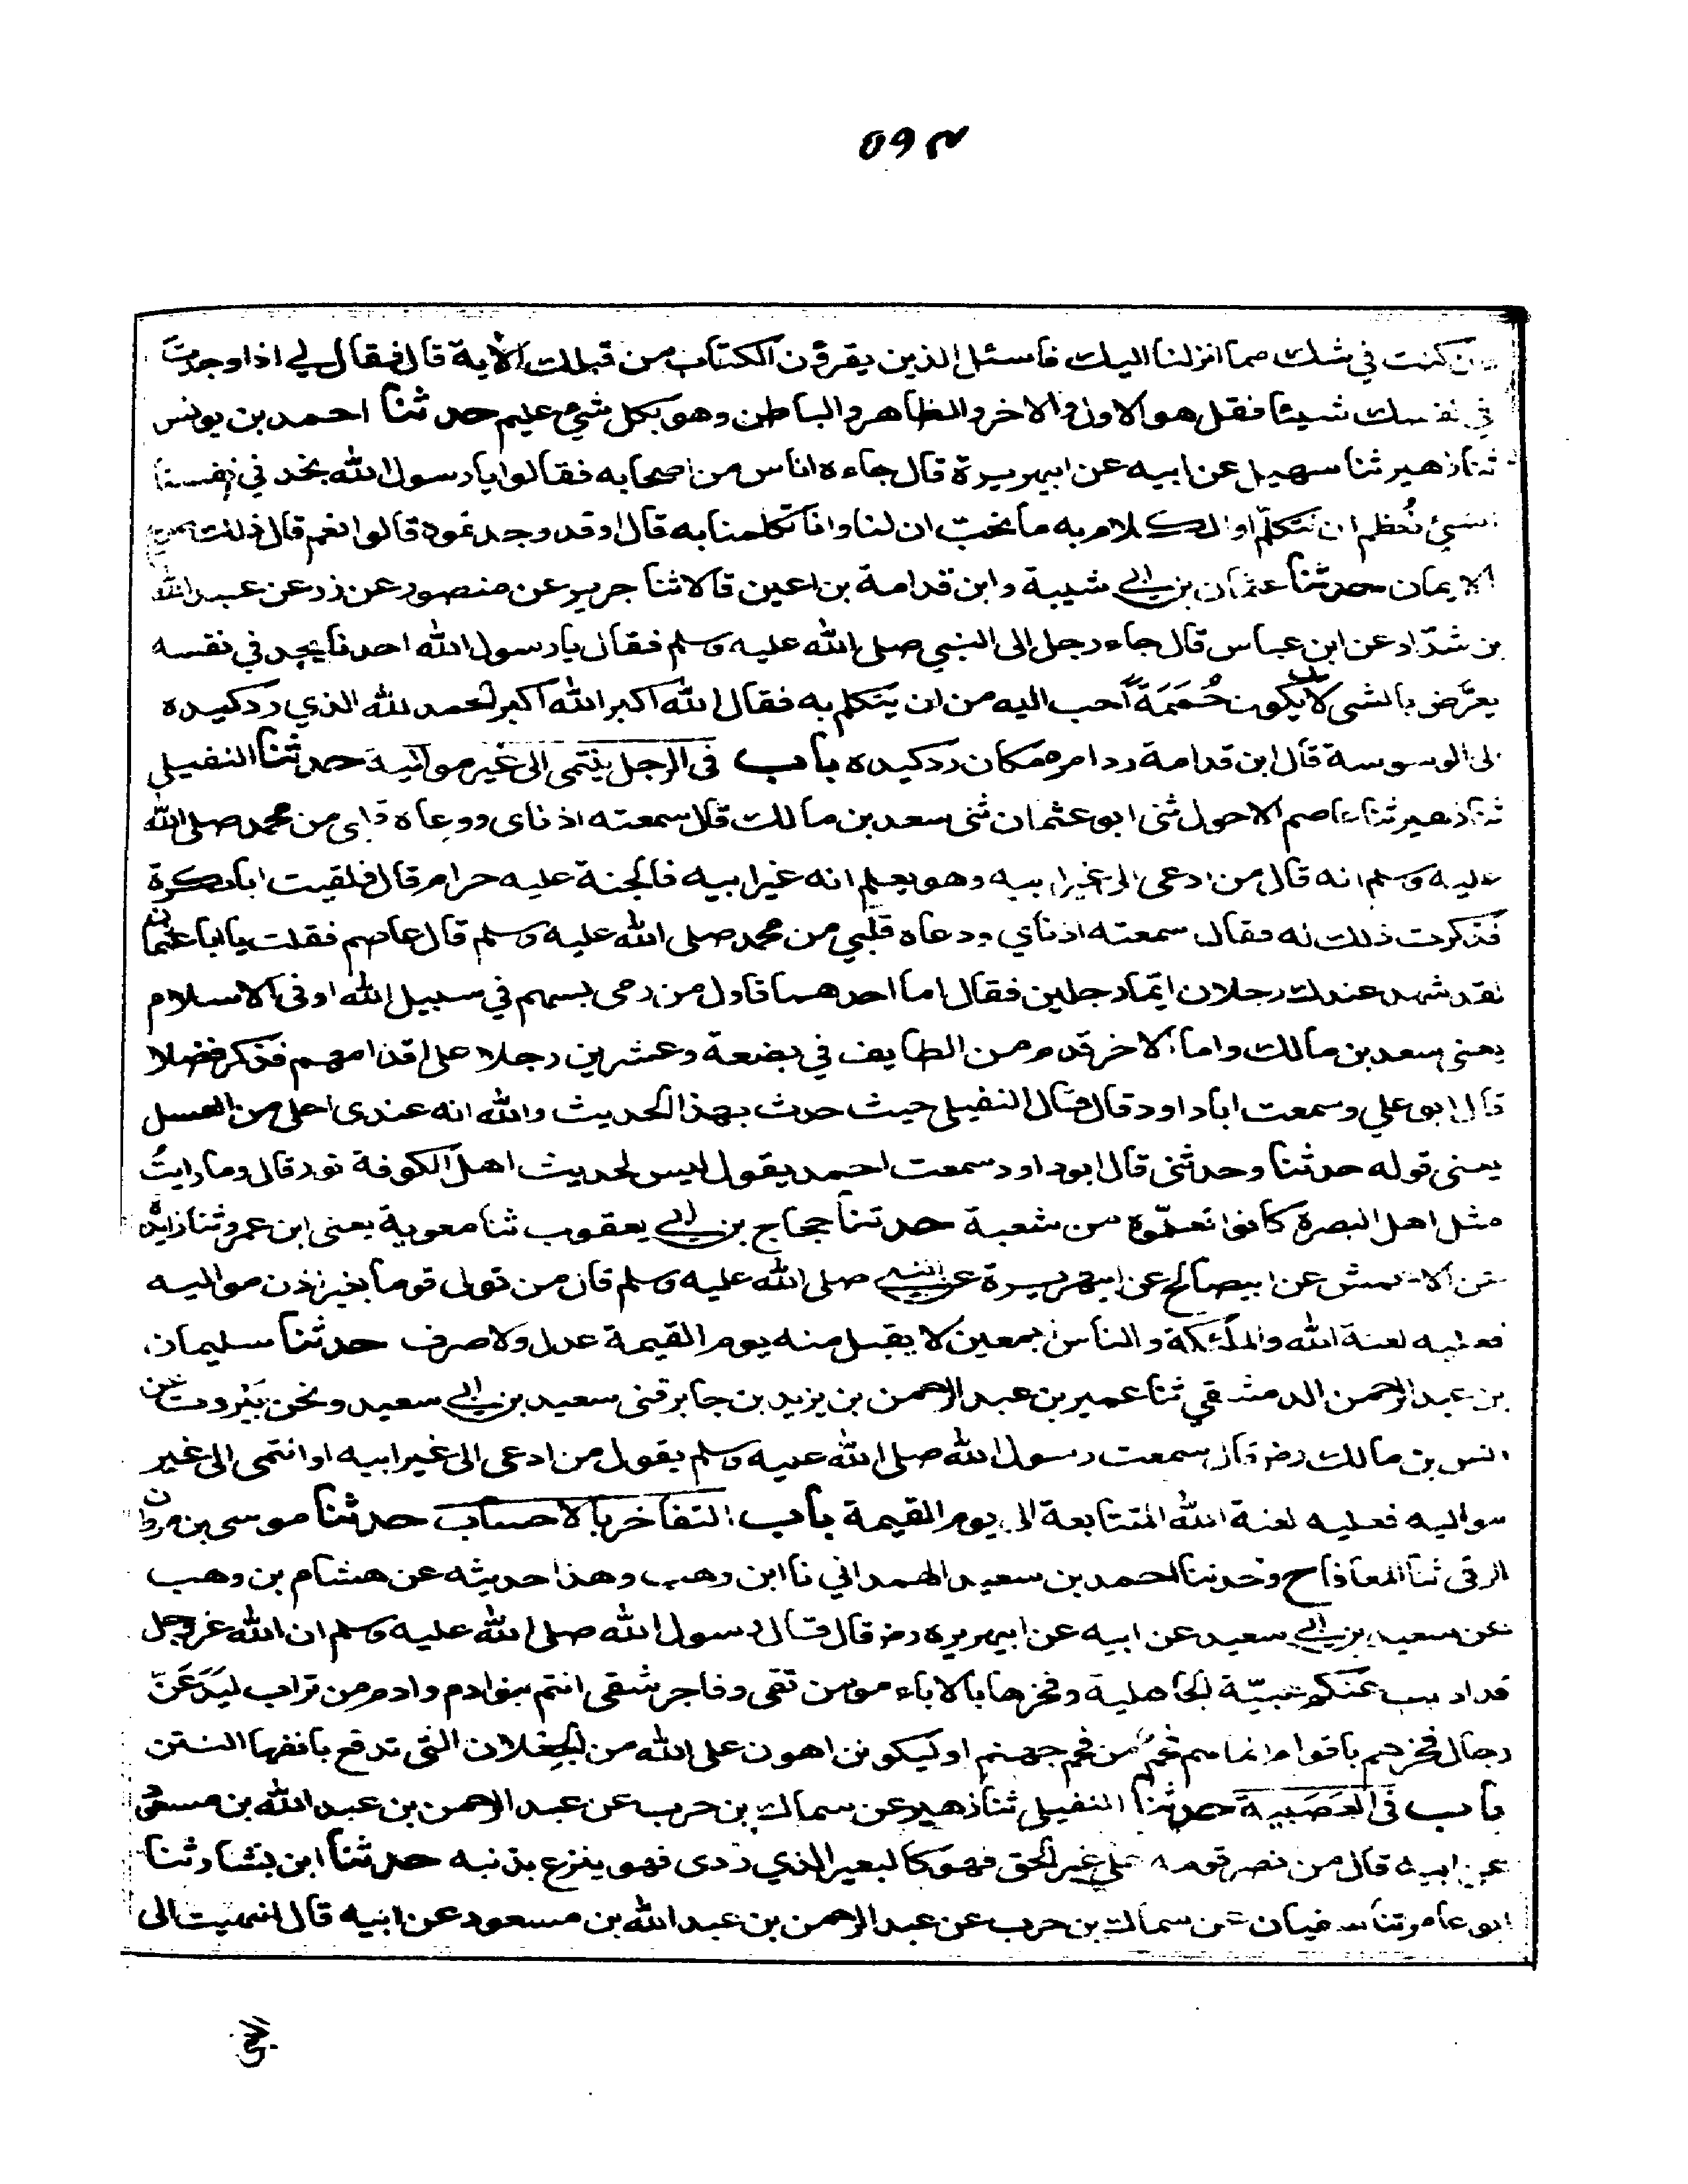 ن كنت في شك مما انزلنا اليك فاسئل الذين يقرؤن الكتاب من قبلك الاية قال فقال لي اذا وجدت
في نفسك شيئا فقل هو الاول والاخر والظاهر والباطن وهو بكل شيء عليم حدثنا احمد بن يونس
ثنا زهير ثنا سهيل عن ابيه عن ابيهريرة قال جاءه اناس من اصحابه فقالوا يا رسول الله نجد في نفسنا
الشيئ نُعظم ان نتكلّم او الكلام به ما نحب ان لنا وانا تكلمنا به قال او قد وجدتموه قالوا نعم قال ذلك صريح
الايمان حدثنا عثمان بن ابي شيبة وابن قدامة بن اعين قالا ثنا جرير عن منصور عن ذر عن عبد الله
بن شدّاد عن ابن عباس قال جاء رجل الى النبي صلى الله عليه وسلم فقال يا رسول الله احدنا يجد في نفسه
يعرَّض بالشي لان يكون حُمَمَةً احب اليه من ان يتكلم به فقال الله اكبر الله اكبر لحمد لله الذي رد كيده
الى الوسوسة قال ابن قدامة رد امره مكان رد كيده باب في الرجل ينتمى الى غير مواليه حدثنا النفيلي
ثنا زهير ثنا عاصم الاحول ثنى ابو عثمان ثنى سعد بن مالك قال سمعته اذناى ووعاه قابى من محمد صلى الله
عليه وسلم انه قال من ادعى الى غير ابيه وهو يعلم انه غير ابيه فالجنة عليه حرام قال فلقيت ابا بكرة
فذكرت ذلك له فقال سمعته اذناي ووعاه قلبي من محمد صلى الله عليه وسلم قال عاصم فقلت يا ابا عثمان
لقد شهد عندك رجلان ايّما رجلين فقال اما احدهما فاول من رمى بسهم في سبيل الله او فى الاسلام
يعنى سعد بن مالك واما الاخر قدم من الطايف في بضعة وعشرين رجلا على اقدامهم فذكر فضلا
قال ابو علي وسمعت ابا داود قال قال النفيلي حيث حدث بهذا الحديث والله انه عندى احلى من العسل
يعنى قوله حدثنا وحدثنى قال ابو داود سمعت احمد يقول ليس لحديث اهل الكوفة نور قال وما رايتُ
مثل اهل البصرة كانوا تعلّموه من شعبة حدثنا حجاج بن ابي يعقوب ثنا معوية يعنى ابن عمرو ثنا زايدة
عن الاعمش عن ابيصالح عن ابيهريرة عن النبي صلى الله عليه وسلم قال من تولى قوما بغير اذن مواليه
فعليه لعنة الله والملئكة والناس اجمعين لا يقبل منه يوم القيمة عدل ولا صرف حدثنا سليمان
بن عبد الرحمن الدمشقي ثنا عمير بن عبد الرحمن بن يزيد بن جابر قنى سعيد بن ابي سعيد ونحن ببَيْروت عن
انس بن مالك رضـ قال سمعت رسول الله صلى الله عليه وسلم يقول من ادعى الى غير ابيه او انتمى الى غير
مواليه فعليه لعنة الله المتتابعة الى يوم القيمة باب التفاخر بالاحساب حدثنا موسى بن مروان
الرقى ثنا المعافا ح وحدثنا احمد بن سعيد الهمداني نا ابن وهب وهذا حديثه عن هشام بن وهب
عن سعيد بن ابي سعيد عن ابيه عن ابيهريره رضـ قال قال رسول الله صلى الله عليه وسلم ان الله عز وجل
قد اذهب عنكم عبيّة الجاهلية وفخرها بالاباء مومن تقى وفاجر شقى انتم بنو ادم وادم من تراب ليَدَعَنّ
رجال فخرهم باقوام انما هم فحمٌ من فحم جهنم او ليكونن اهون على الله من الجِعْلان التى تدفع بانفها النتن
باب فى العَصَبِية حدثنا النفيلى ثنا زهير عن سماك بن حرب عن عبد الرحمن بن عبد الله بن مسعود
عن ابيه قال من نصر قومه على غير الحق فهو كالبعير الذي ردى فهو ينزع بذنبه حدثنا ابن بشار ثنا
ابو عامر ثنا سفيان عن سماك بن حرب عن عبد الرحمن بن عبد الله بن مسعود عن ابيه قال انتهيت الى